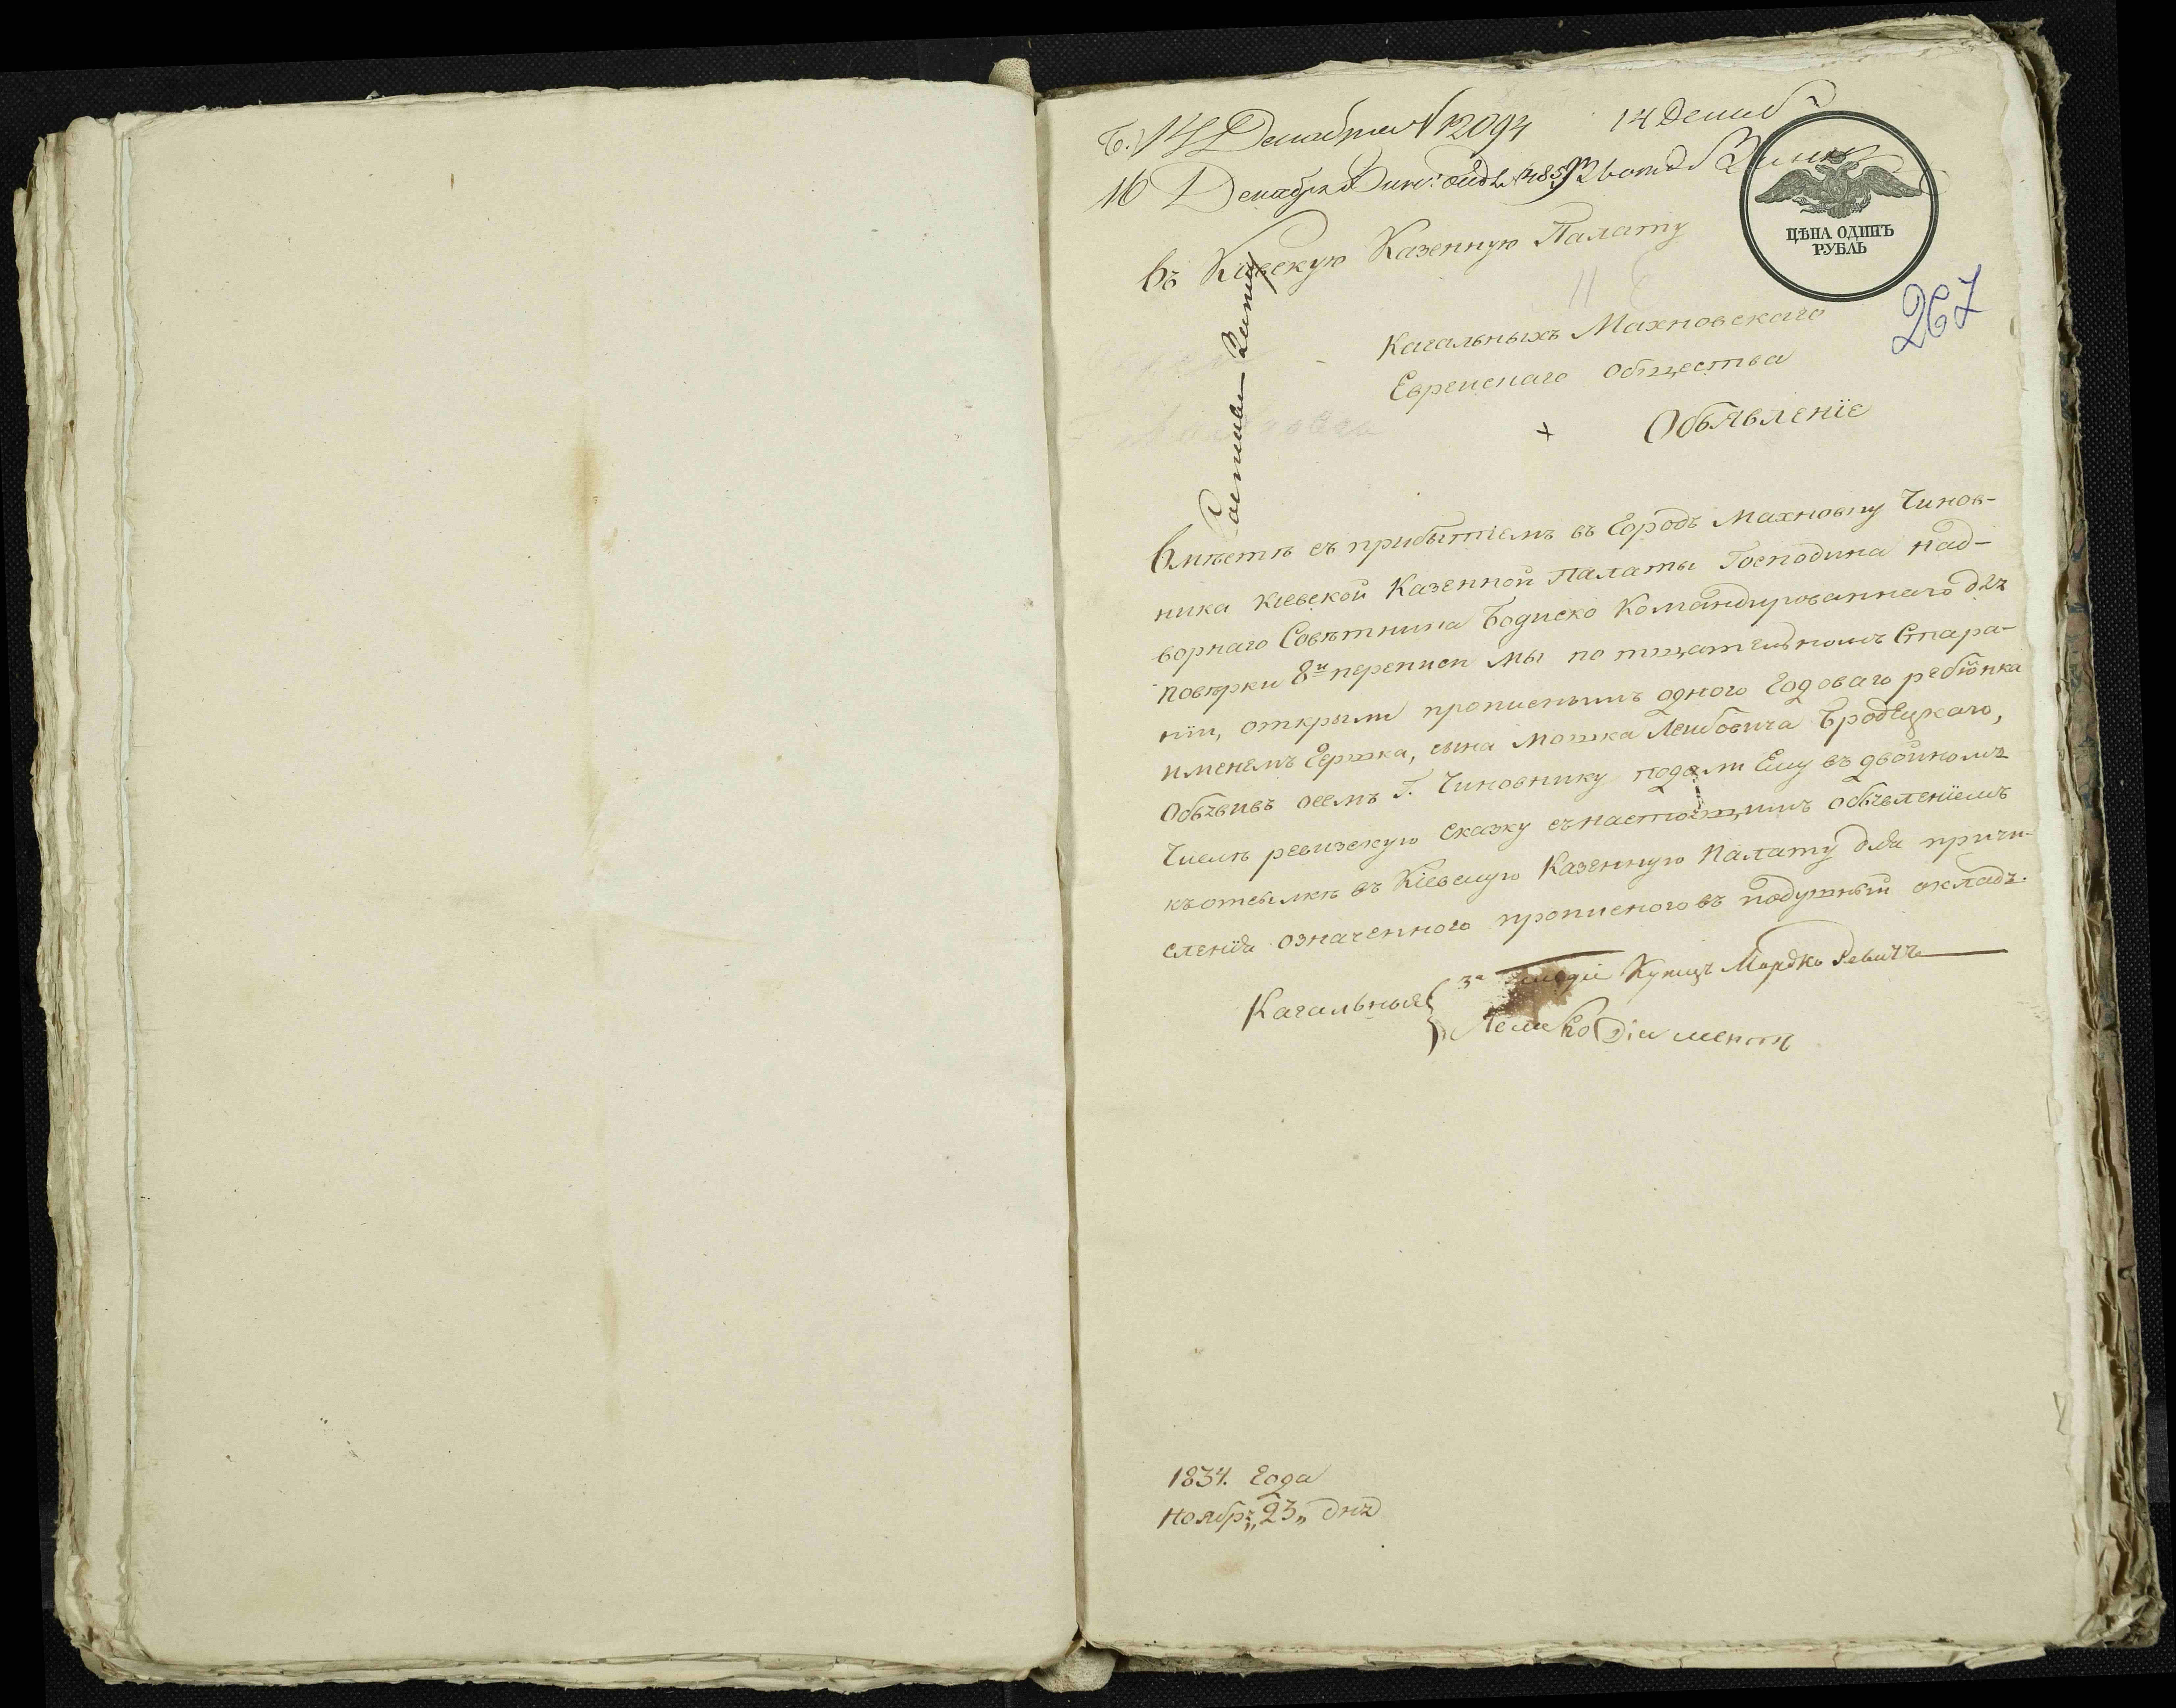 14 Декабря № 12094
14 Декаб
16 Декабря
ЦѢНА ОДИНЪ
РУБЛЬ
267
Въ Кіевскую Казенную Палату
Кагальныхъ Махновскаго
Еврейскаго Общества
Объявленіе
Вмѣстѣ съ прибытіемъ въ Городъ Махновку Чинов-
ника Кіевской Казенной Палаты Господина над-
ворнаго Совѣтника Бодиско Командированнаго для
повѣрки 8й переписи мы по тщательномъ Стара-
ніи, открыли прописнымъ одного Годоваго ребіонка
именемъ Гершка, сына Мошка Лейбовича Бродецкаго,
Объявивъ осемъ Г. Чиновнику подали Ему въ двойномъ
Числѣ ревизскую сказку съ настоящимъ объявленіемъ
къ отсылкѣ въ Кіевскую Казенную Палату для причи-
сленія означенного прописного въ подушный окладъ.
Кагальныя
3й Купецъ Мордко
1834. Года
Ноябр: „23„ дня